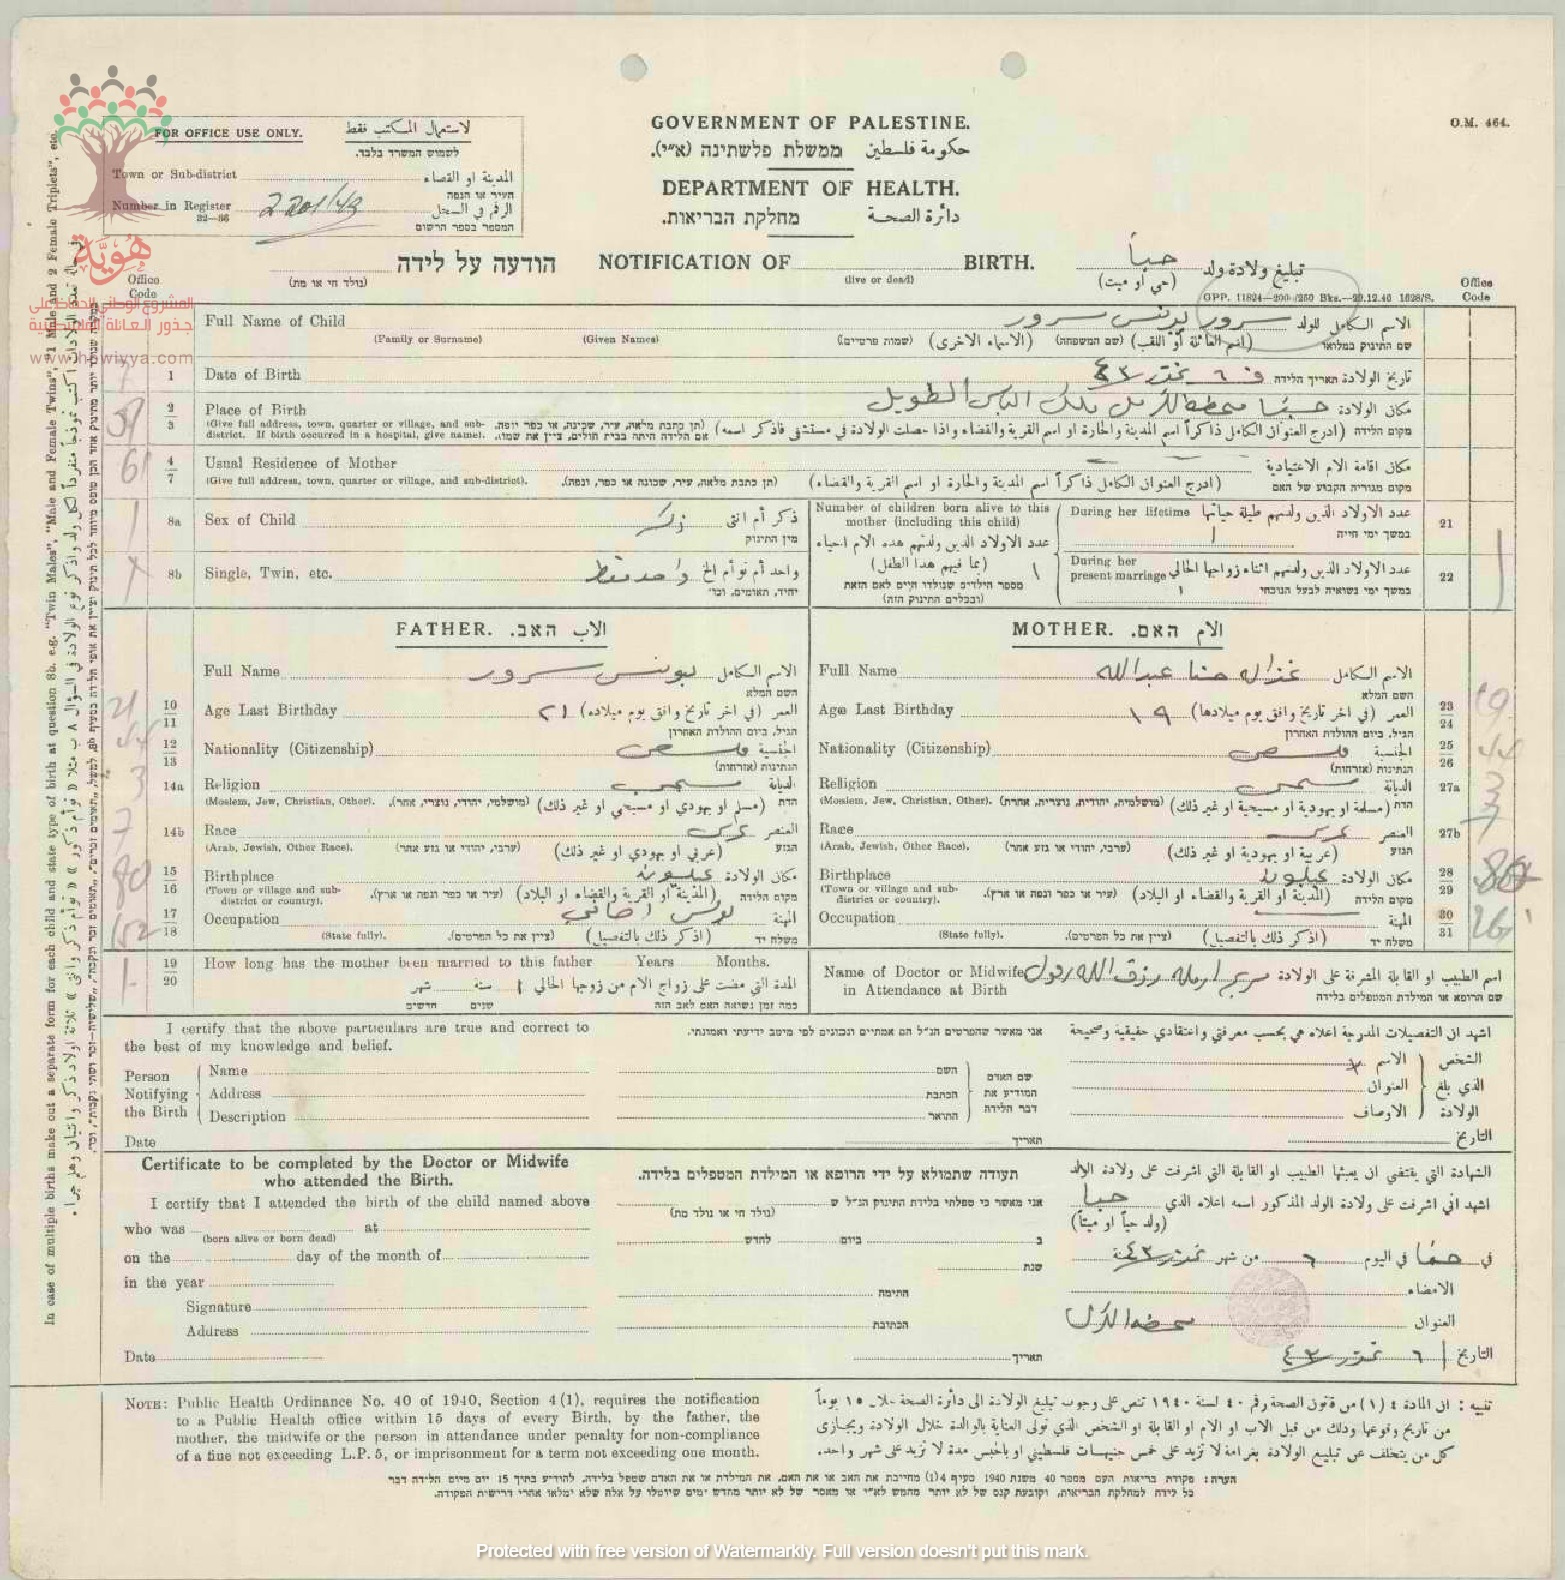 O.M. 464.
FOR OFFICE USE ONLY. لاستعمال المكتب فقط
לשמוש המשרד בלבד.
Town or Sub-district المدينة او القضاء
העיר או הנפה
Number in Register 2201/43 الرقم في السجل
32—66 המספר בספר הרשום
GOVERNMENT OF PALESTINE.
حكومة فلسطين ממשלת פלשתינה (א״י).
DEPARTMENT OF HEALTH.
دائرة الصحة מחלקת הבריאות.
הודעה על לידה NOTIFICATION OF BIRTH. تبليغ ولادة ولد حياً
(נולד חי או מת) (live or dead) (حي او ميت)
GPP. 11824—200/250 Bks.—29.12.40 1628/S.
Office Code
Office Code
هويّة
المشروع الوطني للحفاظ على
جذور العائلة الفلسطينية
www.howiyya.com
Full Name of Child سرور يونس سرور الاسم الكامل للولد
(Family or Surname) (Given Names) (שמות פרטיים) (الاسماء الاخرى) (שם המשפחה) (اسم العائلة او اللقب) שם התינוק במלואו
1 Date of Birth في ٦ تموز ٤٣ تاريخ الولادة תאריך הלידה
2/3 Place of Birth حيفا محطة الكرمل ملك الياس الطويل مكان الولادة
(Give full address, town, quarter or village, and sub-district. If birth occurred in a hospital, give name). (ادرج العنوان الكامل ذاكراً اسم المدينة والحارة او اسم القرية والقضاء واذا حصلت الولادة في مستشفى فاذكر اسمه) מקום הלידה
4/7 Usual Residence of Mother مكان اقامة الام الاعتيادية
(Give full address, town, quarter or village, and sub-district). (ادرج العنوان الكامل ذاكراً اسم المدينة والحارة او اسم القرية والقضاء) מקום מגוריה הקבוע של האם
8a Sex of Child ذكر ذكر أم انثى
מין התינוק
8b Single, Twin, etc. واحد فقط واحد أم توأم الخ
יחיד, תאומים, וכו׳
Number of children born alive to this mother (including this child)
عدد الاولاد الذين ولدتهم هذه الام احياء (بما فيهم هذا الطفل) ١
מספר הילדים שנולדו חיים לאם הזאת (ובכללם התינוק הזה)
During her lifetime عدد الاولاد الذين ولدتهم طيلة حياتها 21
במשך ימי חייה ١
During her present marriage عدد الاولاد الذين ولدتهم اثناء زواجها الحالي 22
במשך ימי נשואיה לבעל הנוכחי ١
FATHER. האב. الاب
Full Name يونس سرور الاسم الكامل
השם המלא
10/11 Age Last Birthday ٢١ العمر (في اخر تاريخ وافق يوم ميلاده)
הגיל, ביום ההולדת האחרון
12/13 Nationality (Citizenship) فلسطيني الجنسية
הנתינות (אזרחות)
14a Religion مسيحي الديانة
(Moslem, Jew, Christian, Other). (מושלמי, יהודי, נוצרי, אחר). (مسلم او يهودي او مسيحي او غير ذلك) הדת
14b Race عربي العنصر
(Arab, Jewish, Other Race). (ערבי, יהודי או גזע אחר) (عربي او يهودي او غير ذلك) הגזע
15/16 Birthplace عيلبون مكان الولادة
(Town or village and sub-district or country). (עיר או כפר ונפה או ארץ). (المدينة او القرية والقضاء او البلاد) מקום הלידה
17/18 Occupation بوليس اضافي المهنة
(State fully). (ציין את כל הפרטים). (اذكر ذلك بالتفصيل) משלח יד
19/20 How long has the mother been married to this father Years Months.
المدة التي مضت على زواج الام من زوجها الحالي ١ سنة شهر
כמה זמן נשואה האם לאב הזה שנים חדשים
MOTHER. האם. الام
Full Name غزال حنا عبدالله الاسم الكامل
השם המלא
Age Last Birthday ١٩ العمر (في اخر تاريخ وافق يوم ميلادها) 23/24
הגיל, ביום ההולדת האחרון
Nationality (Citizenship) فلسطيني الجنسية 25/26
הנתינות (אזרחות)
Relligion مسيحي الديانة 27a
(Moslem, Jew, Christian, Other). (מושלמית, יהודית, נוצרית, אחרת) (مسلمة او يهودية او مسيحية او غير ذلك) הדת
Race عربي العنصر 27b
(Arab, Jewish, Other Race). (ערבי, יהודי או גזע אחר) (عربية او يهودية او غير ذلك) הגזע
Birthplace عيلبون مكان الولادة 28/29
(Town or village and sub-district or country). (עיר או כפר ונפה או ארץ). (المدينة او القرية والقضاء او البلاد) מקום הלידה
Occupation المهنة 30/31
(State fully). (ציין את כל הפרטים). (اذكر ذلك بالتفصيل) משלח יד
Name of Doctor or Midwife اسم الطبيب او القابلة المشرفة على الولادة
in Attendance at Birth שם הרופא או המילדת המטפלים בלידה
I certify that the above particulars are true and correct to אני מאשר שהפרטים הנ״ל הם אמתיים ונכונים לפי מיטב ידיעתי ואמונתי. اشهد ان التفصيلات المدرجة اعلاه هي بحسب معرفتي واعتقادي حقيقية وصحيحة
the best of my knowledge and belief.
Person Notifying the Birth
Name השם الاسم
Address הכתבת العنوان
Description התואר الاوصاف
שם האדם המודיע את דבר הלידה
الشخص الذي بلغ الولادة
Date תאריך التاريخ
Certificate to be completed by the Doctor or Midwife תעודה שתמולא על ידי הרופא או המילדת המטפלים בלידה. الشهادة التي يقتضي ان يعبئها الطبيب او القابلة التي اشرفت على ولادة الولد
who attended the Birth.
I certify that I attended the birth of the child named above אני מאשר כי טפלתי בלידת התינוק הנ״ל ש اشهد اني اشرفت على ولادة الولد المذكور اسمه اعلاه الذي حياً
who was at (נולד חי או נולד מת) (ولد حياً او ميتاً)
(born alive or born dead)
on the day of the month of ב ביום לחדש في حيفا في اليوم ٦ من شهر تموز ٤٣
in the year שנת
Signature החתימה الامضاء
Address הכתובת العنوان محطة الكرمل
Date תאריך التاريخ ٦ تموز ٤٣
NOTE: Public Health Ordinance No. 40 of 1940, Section 4(1), requires the notification
to a Public Health office within 15 days of every Birth, by the father, the
mother, the midwife or the person in attendance under penalty for non-compliance
of a fine not exceeding L.P. 5, or imprisonment for a term not exceeding one month.
تنبيه : ان المادة ٤ (١) من قانون الصحة رقم ٤٠ لسنة ١٩٤٠ تنص على وجوب تبليغ الولادة الى دائرة الصحة خلال ١٥ يوماً
من تاريخ وقوعها وذلك من قبل الاب او الام او القابلة او الشخص الذي تولى العناية بالوالدة خلال الولادة ويجازى
كل من يتخلف عن تبليغ الولادة بغرامة لا تزيد على خمس جنيهات فلسطيني او بالحبس مدة لا تزيد على شهر واحد.
הערה: פקודת בריאות העם מספר 40 משנת 1940 סעיף 4(1) מחייבת את האב או את האם, את המילדת או את האדם שטפל בלידה, להודיע בתוך 15 יום מיום הלידה דבר
כל לידה למחלקת הבריאות, וקובעת קנס של לא יותר מחמש לא״י או מאסר של לא יותר מחדש ימים שיוטלו על אלה שלא ימלאו אחרי דרישת הפקודה.
In case of multiple births make out a separate form for each child and state type of birth at question 8b. e.g. "Twin Males", "Male and Female Twins", "1 Male and 2 Female Triplets", etc.
Protected with free version of Watermarkly. Full version doesn't put this mark.